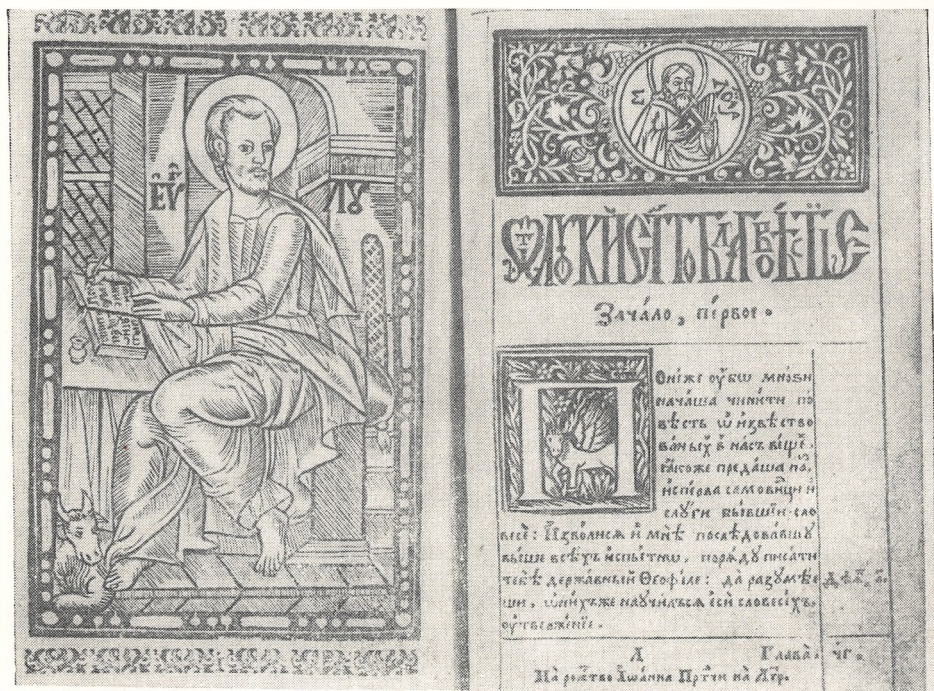 ЕѴ҃ ЛУ
Ѿ ЛУКИ СТ҃ОЕ БЛ҃ГОВѢСТІЕ
Зача́ло, пе́рвое.
Поне́же ᲂу҆́бѡ мно́зи
нача́ша чини́ти по
вѣсть ѡ҆ и҆звѣ́ство
ванныхъ въ на́съ ве́ще.
ꙗ҆́коже преда́ша на́,
и҆спе́рва самови́дцы и҆
слꙋги̑ бы́вшіи сло
весѐ: И҆зво́лисѧ и҆ мнѣ̀ послѣ́довавшꙋ
вы́ше всѣ́хъ и҆спы́тнѡ, порѧ́дꙋ писа́ти
тебѣ̀ держа́вный Ѳео́філе: да разꙋмѣ́е
ши, ѡ҆ни́хъже наꙋчи́лъсѧ є҆сѝ словесѣ́хъ,
ᲂу҆твержде́нїе.
А Глава̀. чг.
На рож҇тво̀ І҆ѡа́нна Прт҇чи на Лтр.